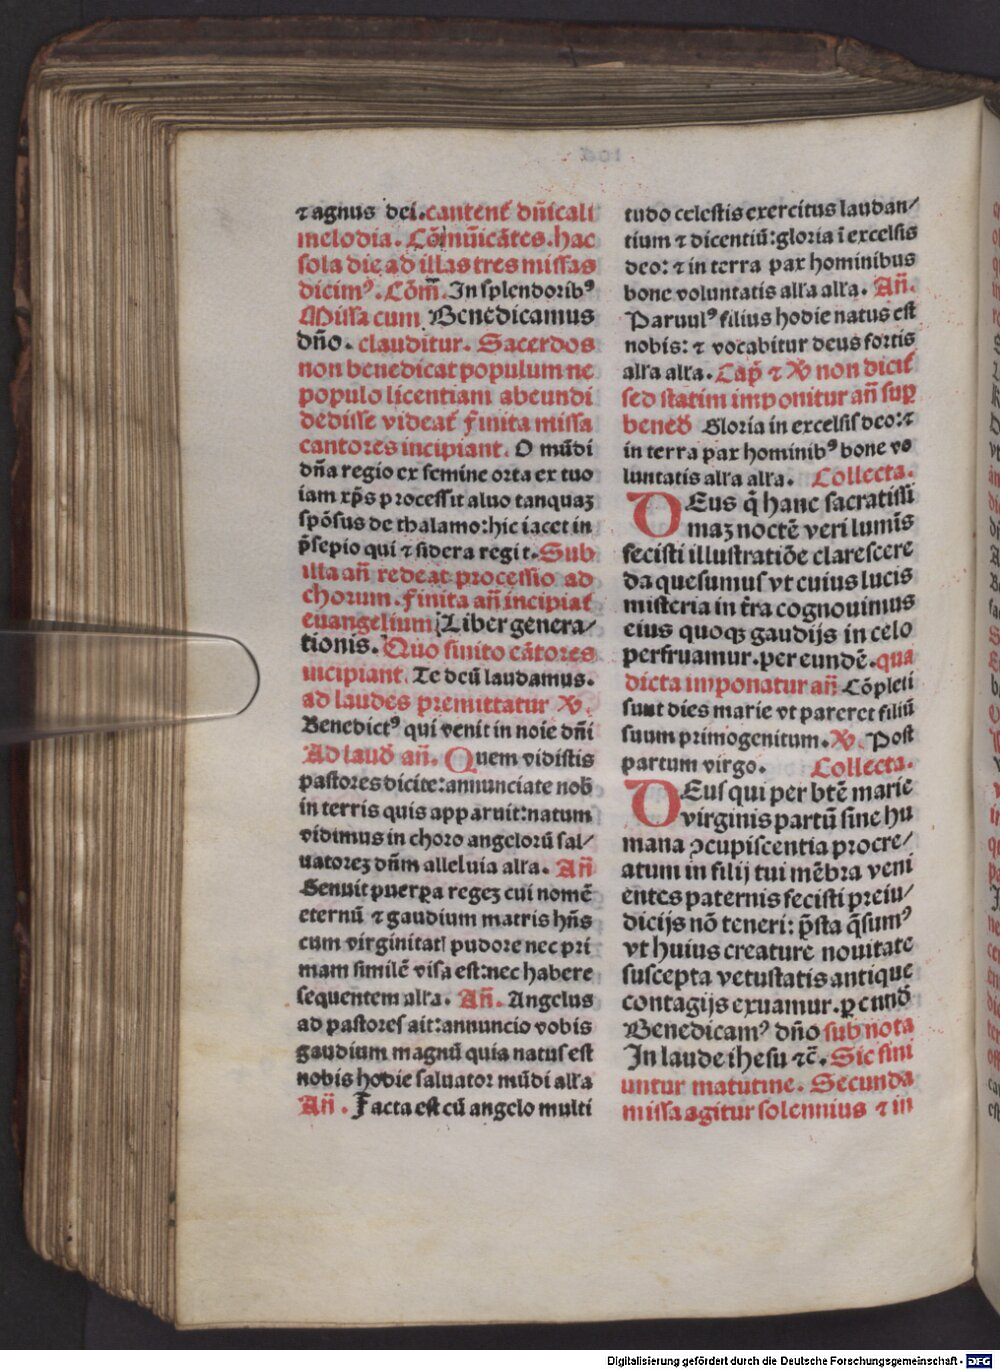 ⁊ agnus dei. cantent᷑ dn̄icali
melodia. Cōmūicātes. hac
sola die ad illas tres missas
dicimꝰ. Cōm̄. In splendoribꝰ
Missa cum Benedicamus
dn̄o. clauditur. Sacerdos
non benedicat populum ne
populo licentiam abeundi
dedisse videat᷑ finita missa
cantores incipiant. O mūdi
dn̄a regio ex semine orta ex tuo
iam xp̄s processit aluo tanquaꝫ
spōsus de thalamo: hic iacet in
p̄sepio qui ⁊ sidera regit. Sub
illa an̄ redeat processio ad
chorum. finita an̄ incipiat᷑
euangelium Liber genera/
tionis. Quo finito cātores
incipiant. Te deū laudamus.
ad laudes premittatur ℣.
Benedictꝰ qui venit in noīe dn̄i
Ad laud̄ an̄. Quem vidistis
pastores dicite: annunciate nob̄
in terris quis apparuit: natum
vidimus in choro angelorū sal/
uatoreꝫ dn̄m alleluia alľa. An̄
Genuit puerpa regeꝫ cui nomē
eternū ⁊ gaudium matris hn̄s
cum virginitatꝭ pudore nec pri
mam similē visa est: nec habere
sequentem alľa. An̄. Angelus
ad pastores ait: annuncio vobis
gaudium magnū quia natus est
nobis hodie saluator mūdi alľa
An̄. Facta est cū angelo multi
tudo celestis exercitus laudan/
tium ⁊ dicentiū: gloria ī excelsis
deo: ⁊ in terra pax hominibus
bone voluntatis alľa alľa. An̄.
Paruulꝰ filius hodie natus est
nobis: ⁊ vocabitur deus fortis
alľa alľa. Cap̄ ⁊ ℣ non dicit᷑
sed statim imponitur an̄ sup̄
bened̄ Gloria in excelsis deo: ⁊
in terra pax hominibꝰ bone vo
luntatis alľa alľa. Collecta.
DEus q̄ hanc sacratissi
maꝫ noctē veri lumīs
fecisti illustratiōe clarescere
da quesumus vt cuius lucis
misteria in tr̄a cognouimus
eius quoqꝫ gaudijs in celo
perfruamur. per eundē. qua
dicta imponatur an̄ Cōpleti
sunt dies marie vt pareret filiū
suum primogenitum. ℣. Post
partum virgo. Collecta.
DEus qui per btē marie
virginis partū sine hu
mana ꝯcupiscentia procre/
atum in filij tui mēbra veni
entes paternis fecisti preiu/
dicijs nō teneri: p̄sta q̄sumꝰ
vt huius creature nouitate
suscepta vetustatis antique
contagijs exuamur. ꝑ eund̄
Benedicamꝰ dn̄o sub nota
In laude ihesu ⁊c̄. Sic fini
untur matutine. Secunda
missa agitur solennius ⁊ in
Digitalisierung gefördert durch die Deutsche Forschungsgemeinschaft - DFG